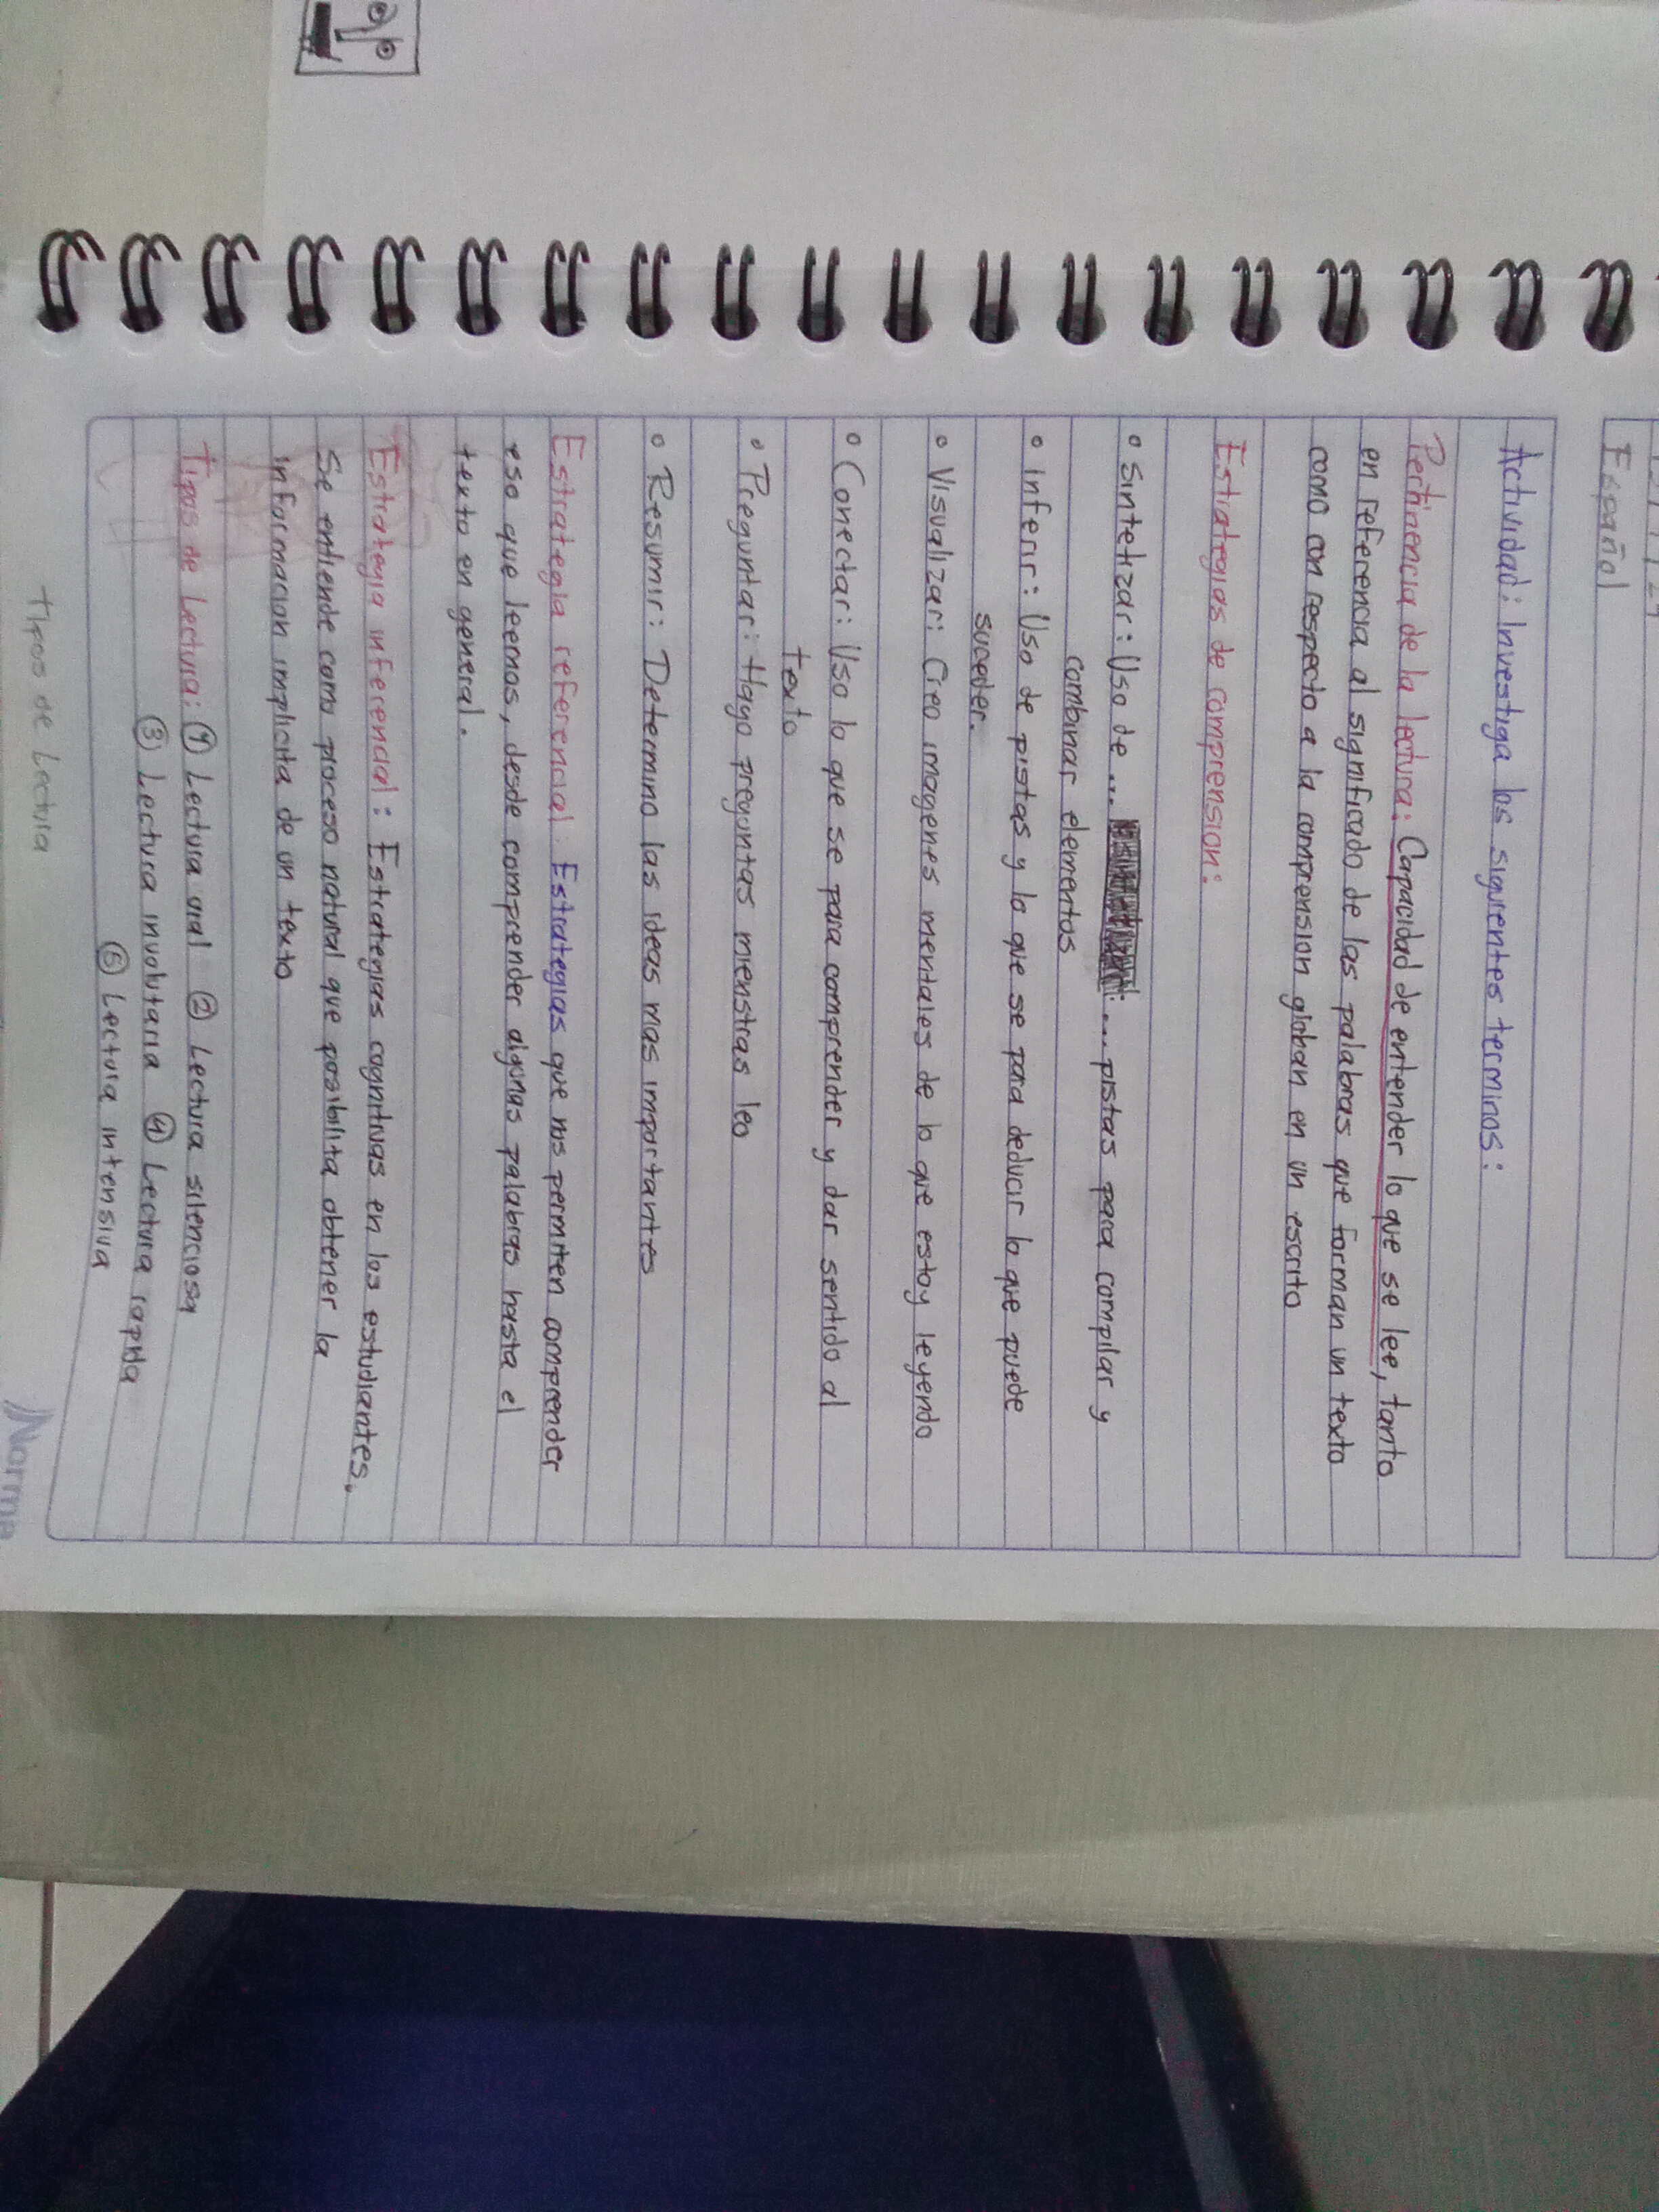 Español
Actividad: Investiga los siguientes terminos:
Pertinencia de la lectura: Capacidad de entender lo que se lee, tanto
en referencia al significado de las palabras que forman un texto
como con respecto a la comprension globan en un escrito
Estrategias de comprension:
• Sintetizar: Uso de ... ... pistas para compilar y
combinar elementos
• Inferir: Uso de pistas y lo que se para deducir lo que puede
suceder.
• Visualizar: Creo imagenes mentales de lo que estoy leyendo
• Conectar: Uso lo que se para comprender y dar sentido al
texto
• Preguntar: Hago preguntas mienstras leo
• Resumir: Determino las ideas mas importantes
Estrategia referencial: Estrategias que nos permiten comprender
eso que leemos, desde comprender algunas palabras hasta el
texto en general.
Estrategia inferencial: Estrategias cognitivas en los estudiantes.
Se entiende como proceso natural que posibilita obtener la
informacion implicita de un texto
Tipos de Lectura: ① Lectura oral ② Lectura silenciosa
③ Lectura involutaria ④ Lectura rapida
⑤ Lectura intensiva
Tipos de Lectura
Norma